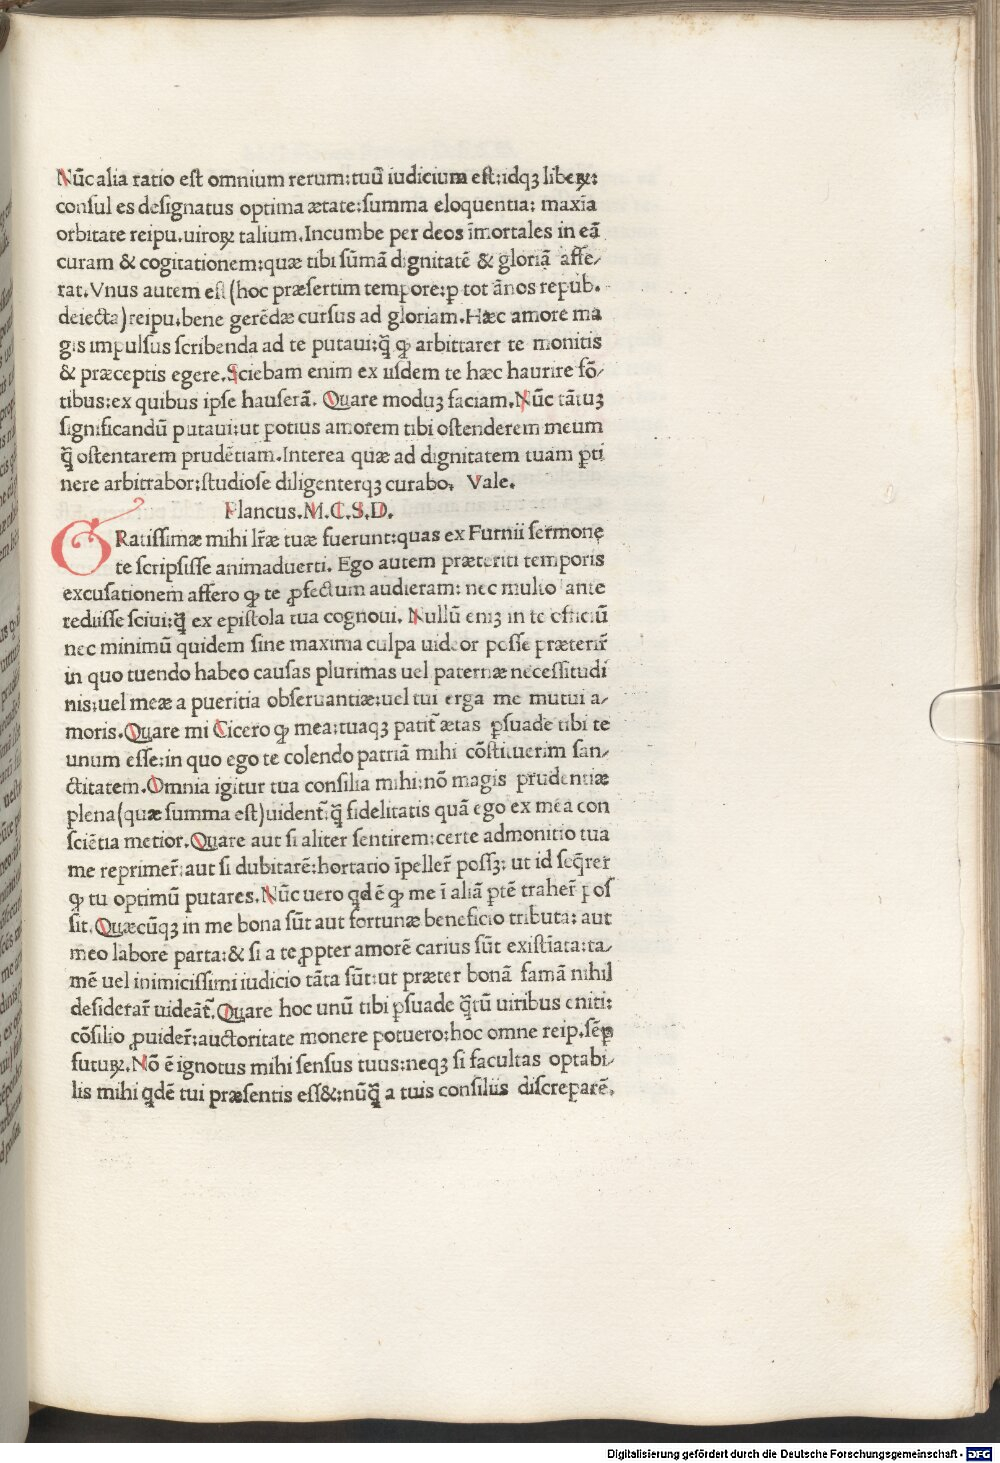 Nūc alia ratio est omnium rerum:tuū iudicium est:idqꝫ libeꝝ:
consul es designatus optima ætate:summa eloquentia: maxīa
orbitate reipu.uiroꝝ talium.Incumbe per deos īmortales in eā
curam & cogitationem:quæ tibi sūmā dignitatē & gloriā affe-
rat.Vnus autem est (hoc præsertim tempore:ꝑ tot ānos repub.
deiecta)reipu.bene gerēdæ cursus ad gloriam.Hæc amore ma
gis impulsus scribenda ad te putaui:q̄̄ ꝙ arbitrarer te monitis
& præceptis egere.Sciebam enim ex iisdem te hæc haurire fō-
tibus:ex quibus ipse hauserā. Quare moduꝫ faciam.Nūc tātuꝫ
significandū putaui:ut potius amorem tibi ostenderem meum
q̄̄ ostentarem prudētiam.Interea quæ ad dignitatem tuam ꝑti
nere arbitrabor:studiose diligenterqꝫ curabo. Vale.
Plancus.M.C.S.D.
GRatissimæ mihi lr̄æ tuæ fuerunt:quas ex Furnii sermone
te scripsisse animaduerti. Ego autem præteriti temporis
excusationem affero ꝙ te ꝓfectum audieram: nec multo ante
rediisse sciui:q̄̄ ex epistola tua cognoui. Nullū enꝫ in te officiū
nec minimū quidem sine maxima culpa uideor posse præterir̄
in quo tuendo habeo causas plurimas uel paternæ necessitudi
nis:uel meæ a pueritia obseruantiæ:uel tui erga me mutui a-
moris.Quare mi Cicero ꝙ mea:tuaqꝫ patit̄ ætas ꝑsuade tibi te
unum esse:in quo ego te colendo patriā mihi cōstituerim san-
ctitatem.Omnia igitur tua consilia mihi:nō magis prudentiæ
plena(quæ summa est)uident̄:q̄̄ fidelitatis quā ego ex mea con
sciētia metior.Quare aut si aliter sentirem:certe admonitio tua
me reprimer̄:aut si dubitarē:hortatio īpeller̄ possꝫ: ut id seq̄rer
ꝙ tu optimū putares.Nūc uero qd ē ꝙ me ī aliā ptē traher̄ pos
sit.Quæcūqꝫ in me bona sūt aut fortunæ beneficio tributa: aut
meo labore parta:& si a te ꝓpter amorē carius sūt existīata:ta-
mē uel inimicissimi iudicio tāta sūt:ut præter bonā famā nihil
desiderar̄ uideāt̄.Quare hoc unū tibi ꝑsuade q̄̄tū uiribus eniti:
cōsilio ꝓuider̄:auctoritate monere potuero:hoc omne reip.sēꝑ
futuꝝ.Nō ē ignotus mihi sensus tuus:neqꝫ si facultas optabi-
lis mihi qdē tui præsentis ess&:nūq̄̄ a tuis consiliis discreparē.
Digitalisierung gefördert durch die Deutsche Forschungsgemeinschaft - DFG